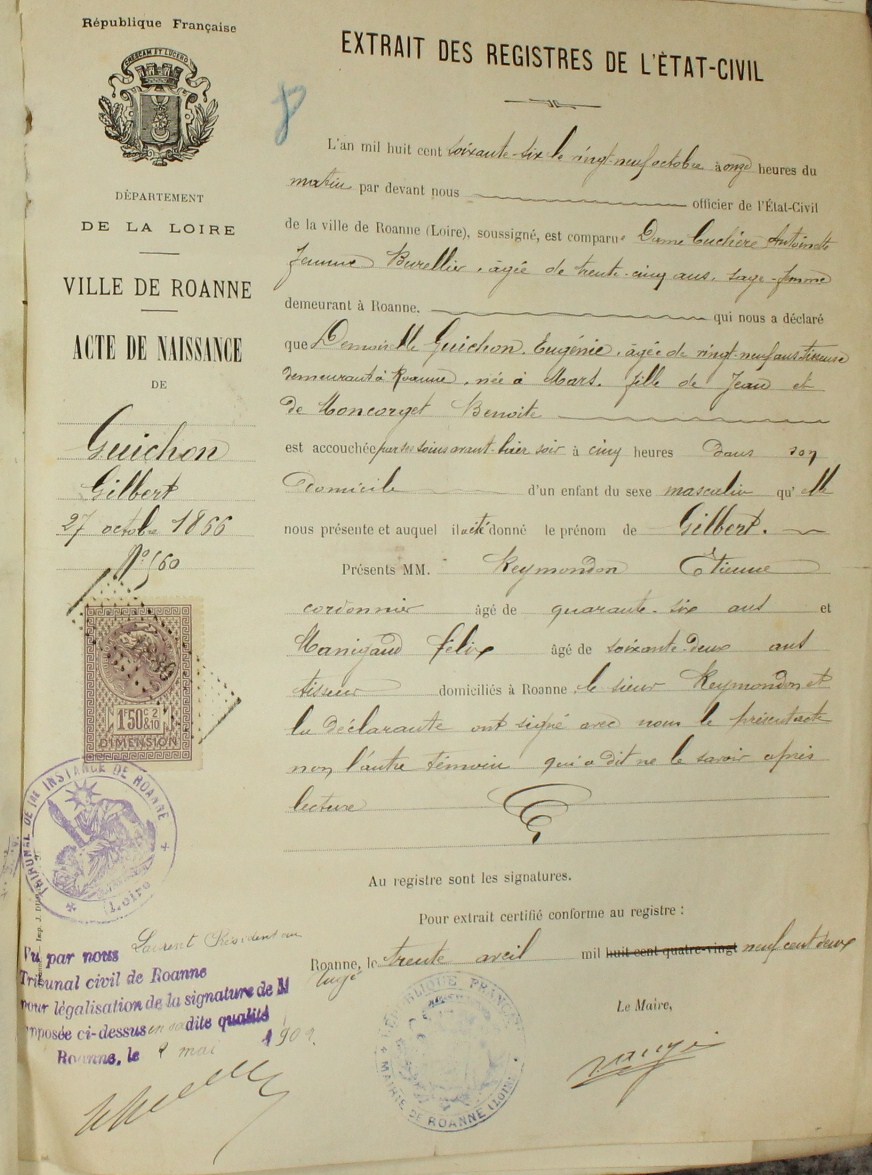 République Française
CRESCAM ET LUCEBO
DÉPARTEMENT
DE LA LOIRE
VILLE DE ROANNE
ACTE DE NAISSANCE
DE
Guichon
Gilbert
27 octobre 1866
N° 560
1F50c 2/10
DIMENSION
TRIBUNAL DE 1re INSTANCE DE ROANNE
(Loire)
Vu par nous Laurent Président du
Tribunal civil de Roanne
pour légalisation de la signature de M
apposée ci-dessus en sa dite qualité
Roanne, le 2 mai 1902
EXTRAIT DES REGISTRES DE L'ÉTAT-CIVIL
L'an mil huit cent soixante-six le vingt-neuf octobre à onze heures du
matin par devant nous officier de l'État-Civil
de la ville de Roanne (Loire), soussigné, est comparue Dame Cuchère Antoinette
Jeanne Burellier, âgée de trente-cinq ans, sage-femme
demeurant à Roanne. qui nous a déclaré
que Demoiselle Guichon, Eugénie, âgée de vingt-neuf ans tisseuse
demeurant à Roanne, née à Mars, fille de Jean et
de Moncorget Benoite
est accouchée par ses soins avant-hier soir à cinq heures dans son
Domicile d'un enfant du sexe masculin qu'Elle
nous présente et auquel il a été donné le prénom de Gilbert.
Présents MM. Reymondon Étienne
cordonnier âgé de quarante-six ans et
Manigaud félix âgé de soixante-deux ans
tisseur domiciliés à Roanne, le sieur Reymondon et
la déclarante ont signé avec nous le présent acte
non l'autre témoin qui a dit ne le savoir après
lecture
Au registre sont les signatures.
Pour extrait certifié conforme au registre :
Roanne, le trente avril mil huit cent quatre-vingt neuf cent deux
Le Maire,
RÉPUBLIQUE FRANÇAISE
MAIRIE DE ROANNE (LOIRE)